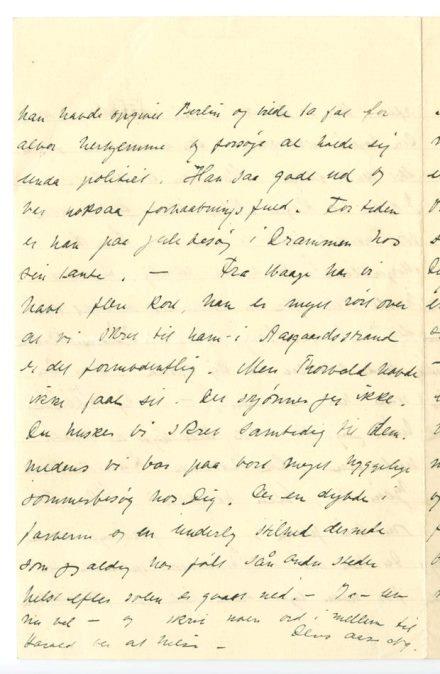 han havde opgivet Berlin og vilde ta fat for
alvor herhjemme og forsøge at holde sig
unda politiet. Han saa godt ud og
var noksaa forhaabningsfuld. For tiden
er han paa julebesøg i Drammen hos
sin tante. — Fra Waage har vi
havt flere kort, han er meget rørt over
at vi skrev til ham – i Aasgaardsstrand
er det formodentlig. Men Thorvald havde
ikke faat sit. Det skjønner jeg ikke.
Du husker vi skrev samtidig til dem.
medens vi var paa vort meget hyggelige
sommerbesøg hos Dig. Der en dybde i
farverne og en underlig stilhed dernede
som jeg aldrig har følt andre steder
helst efter solen er gaaet ned. – Ja – lev
nu vel – og skriv noen ord i mellem til
Harald ber at hilse – Deres